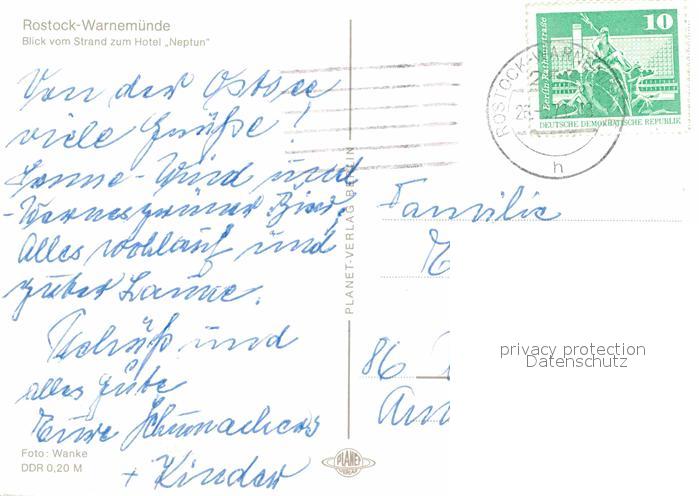 Rostock-Warnemünde
Blick vom Strand zum Hotel „Neptun"
Von der Ostsee
viele Grüße!
Sonne - Wind und
- Wernesgrüner Bier,
Alles wohlauf und
guter Laune.
Tschüß und
alles Gute
Eure Schumachers
+ Kinder
Foto: Wanke
DDR 0,20 M
PLANET-VERLAG BERLIN
PLANET
VERLAG
10
Berlin, Rathausstraße
DEUTSCHE DEMOKRATISCHE REPUBLIK
ROSTOCK-WARN
h
Familie
86
privacy protection
Datenschutz